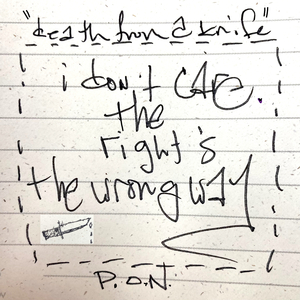 "death from a knife"
i don't CARE.
the
right's
the wrong way
P.O.N.